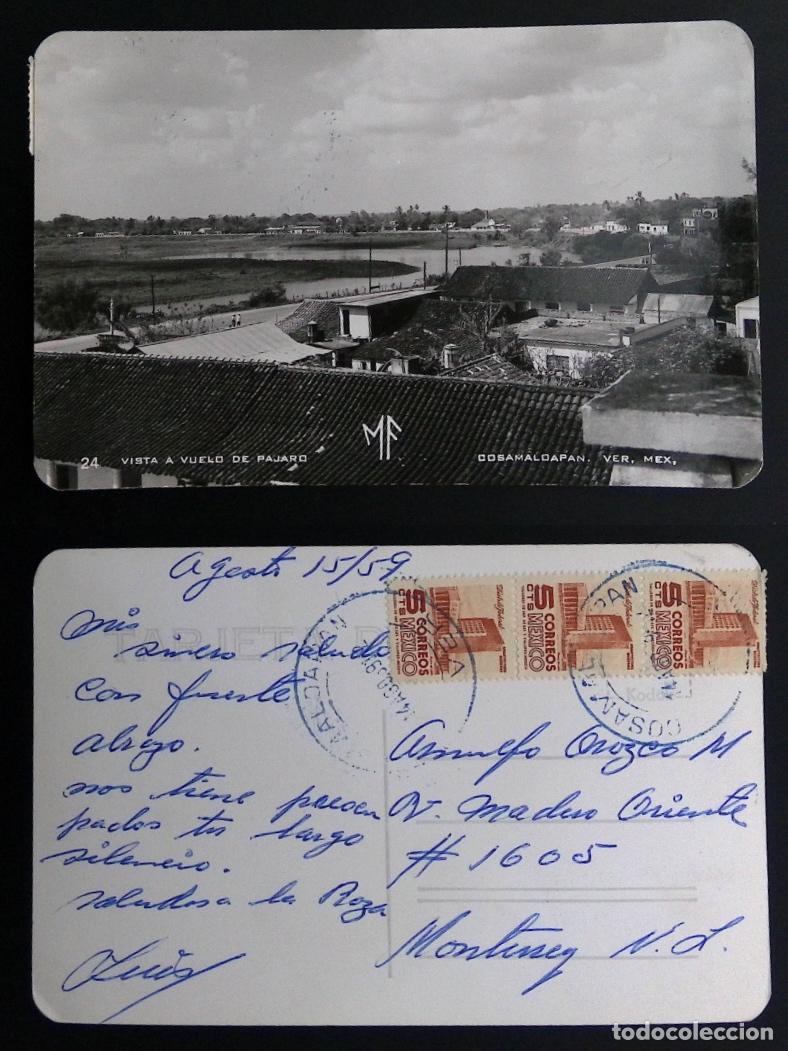 MF
24 VISTA A VUELO DE PAJARO
COSAMALOAPAN. VER, MEX,
Agosto 15/59
TARJETA
mis
sincero saludo
con fuerte
abrazo.
nos tiene preocu
pados tu largo
silencio.
saludos a la Roza
Luis
5 CTS CORREOS MEXICO
5 CTS CORREOS MEXICO
5 CTS CORREOS MEXICO
COSAMAL
14 AGO
Kodak
Arnulfo Orozco M
Av. Madero Oriente
# 1605
Monterrey N. L.
todocoleccion